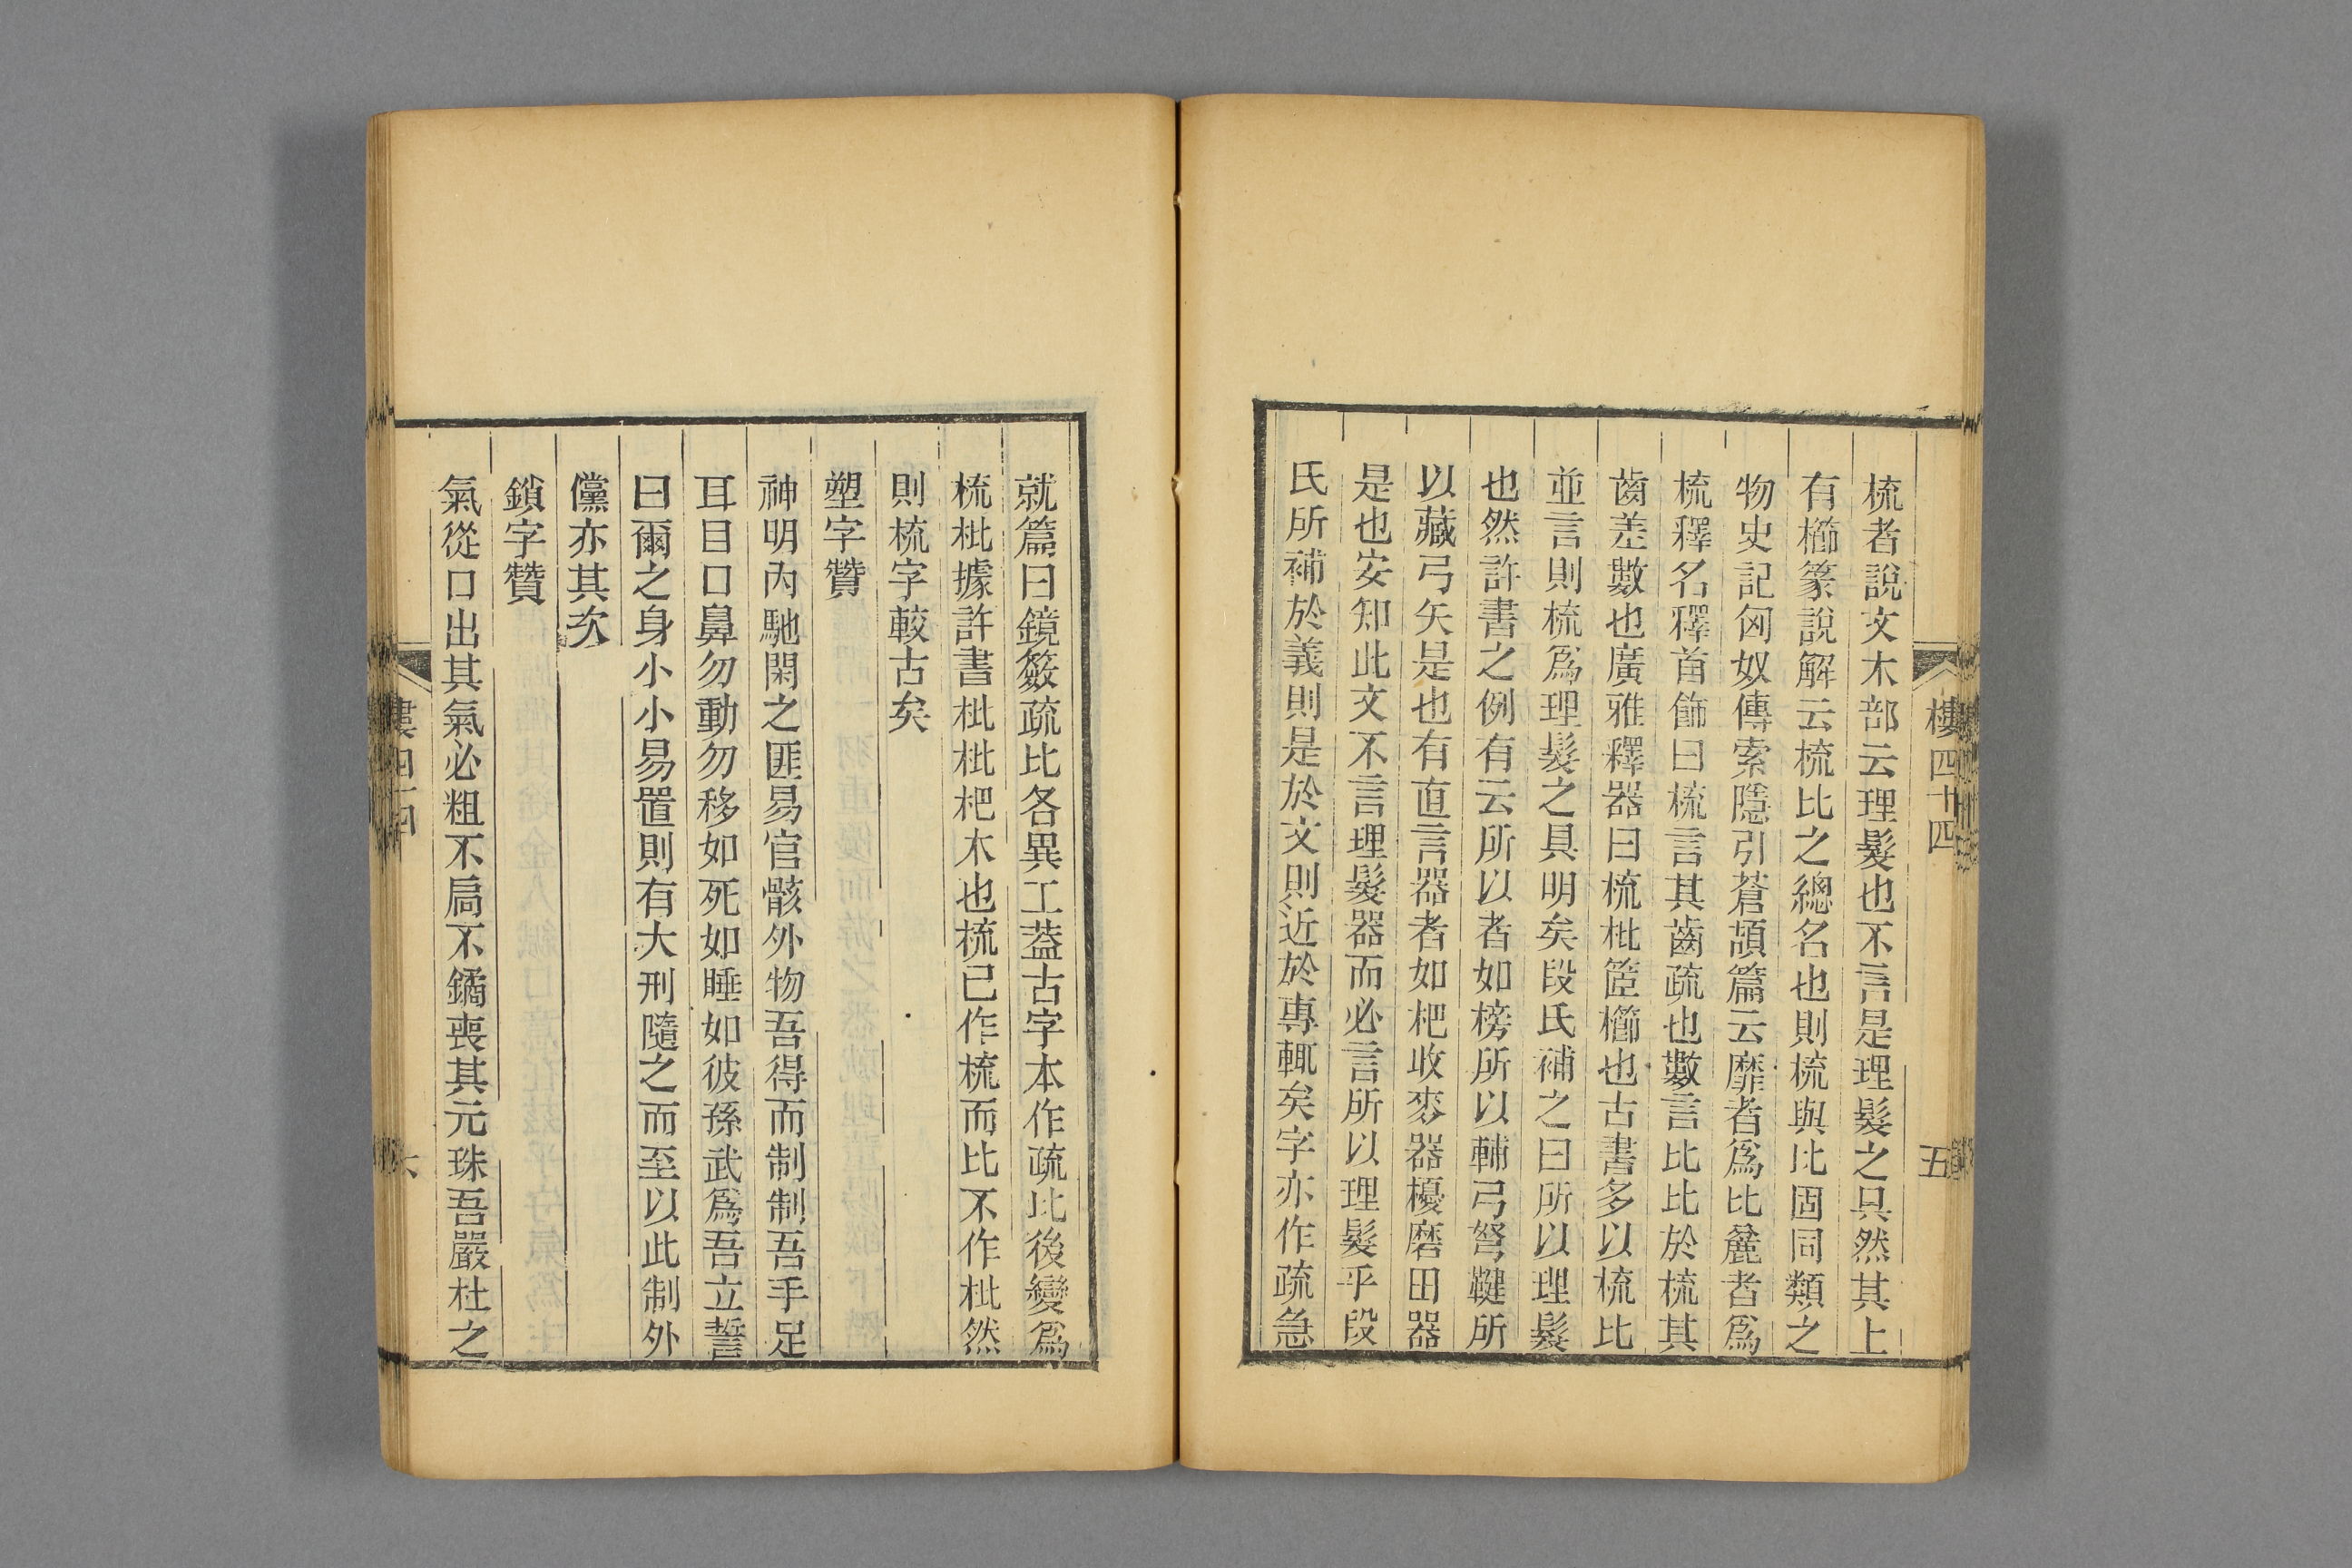 樓四十四
五
梳者說文木部云理髮也不言是理髮之具然其上
有櫛篆說解云梳比之總名也則梳與比固同類之
物史記匈奴傳索隱引蒼頡篇云靡者爲比麄者爲
梳釋名釋首飾曰梳言其齒疏也數言比比於梳其
齒差數也廣雅釋器曰梳枇筐櫛也古書多以梳比
並言則梳爲理髮之具明矣段氏補之曰所以理髮
也然許書之例有云所以者如榜所以輔弓弩鞬所
以藏弓矢是也有直言器者如杷收麥器櫌磨田器
是也安知此文不言理髮器而必言所以理髮乎段
氏所補於義則是於文則近於專輒矣字亦作疏急
就篇曰鏡籢疏比各異工蓋古字本作疏比後變爲
梳枇據許書枇枇杷木也梳已作梳而比不作枇然
則梳字較古矣
塑字贊
神明內馳閑之匪易官骸外物吾得而制制吾手足
耳目口鼻勿動勿移如死如睡如彼孫武爲吾立誓
曰爾之身小小易置則有大刑隨之而至以此制外
儻亦其次
鎖字贊
氣從口出其氣必粗不扃不鐍喪其元珠吾嚴杜之
六